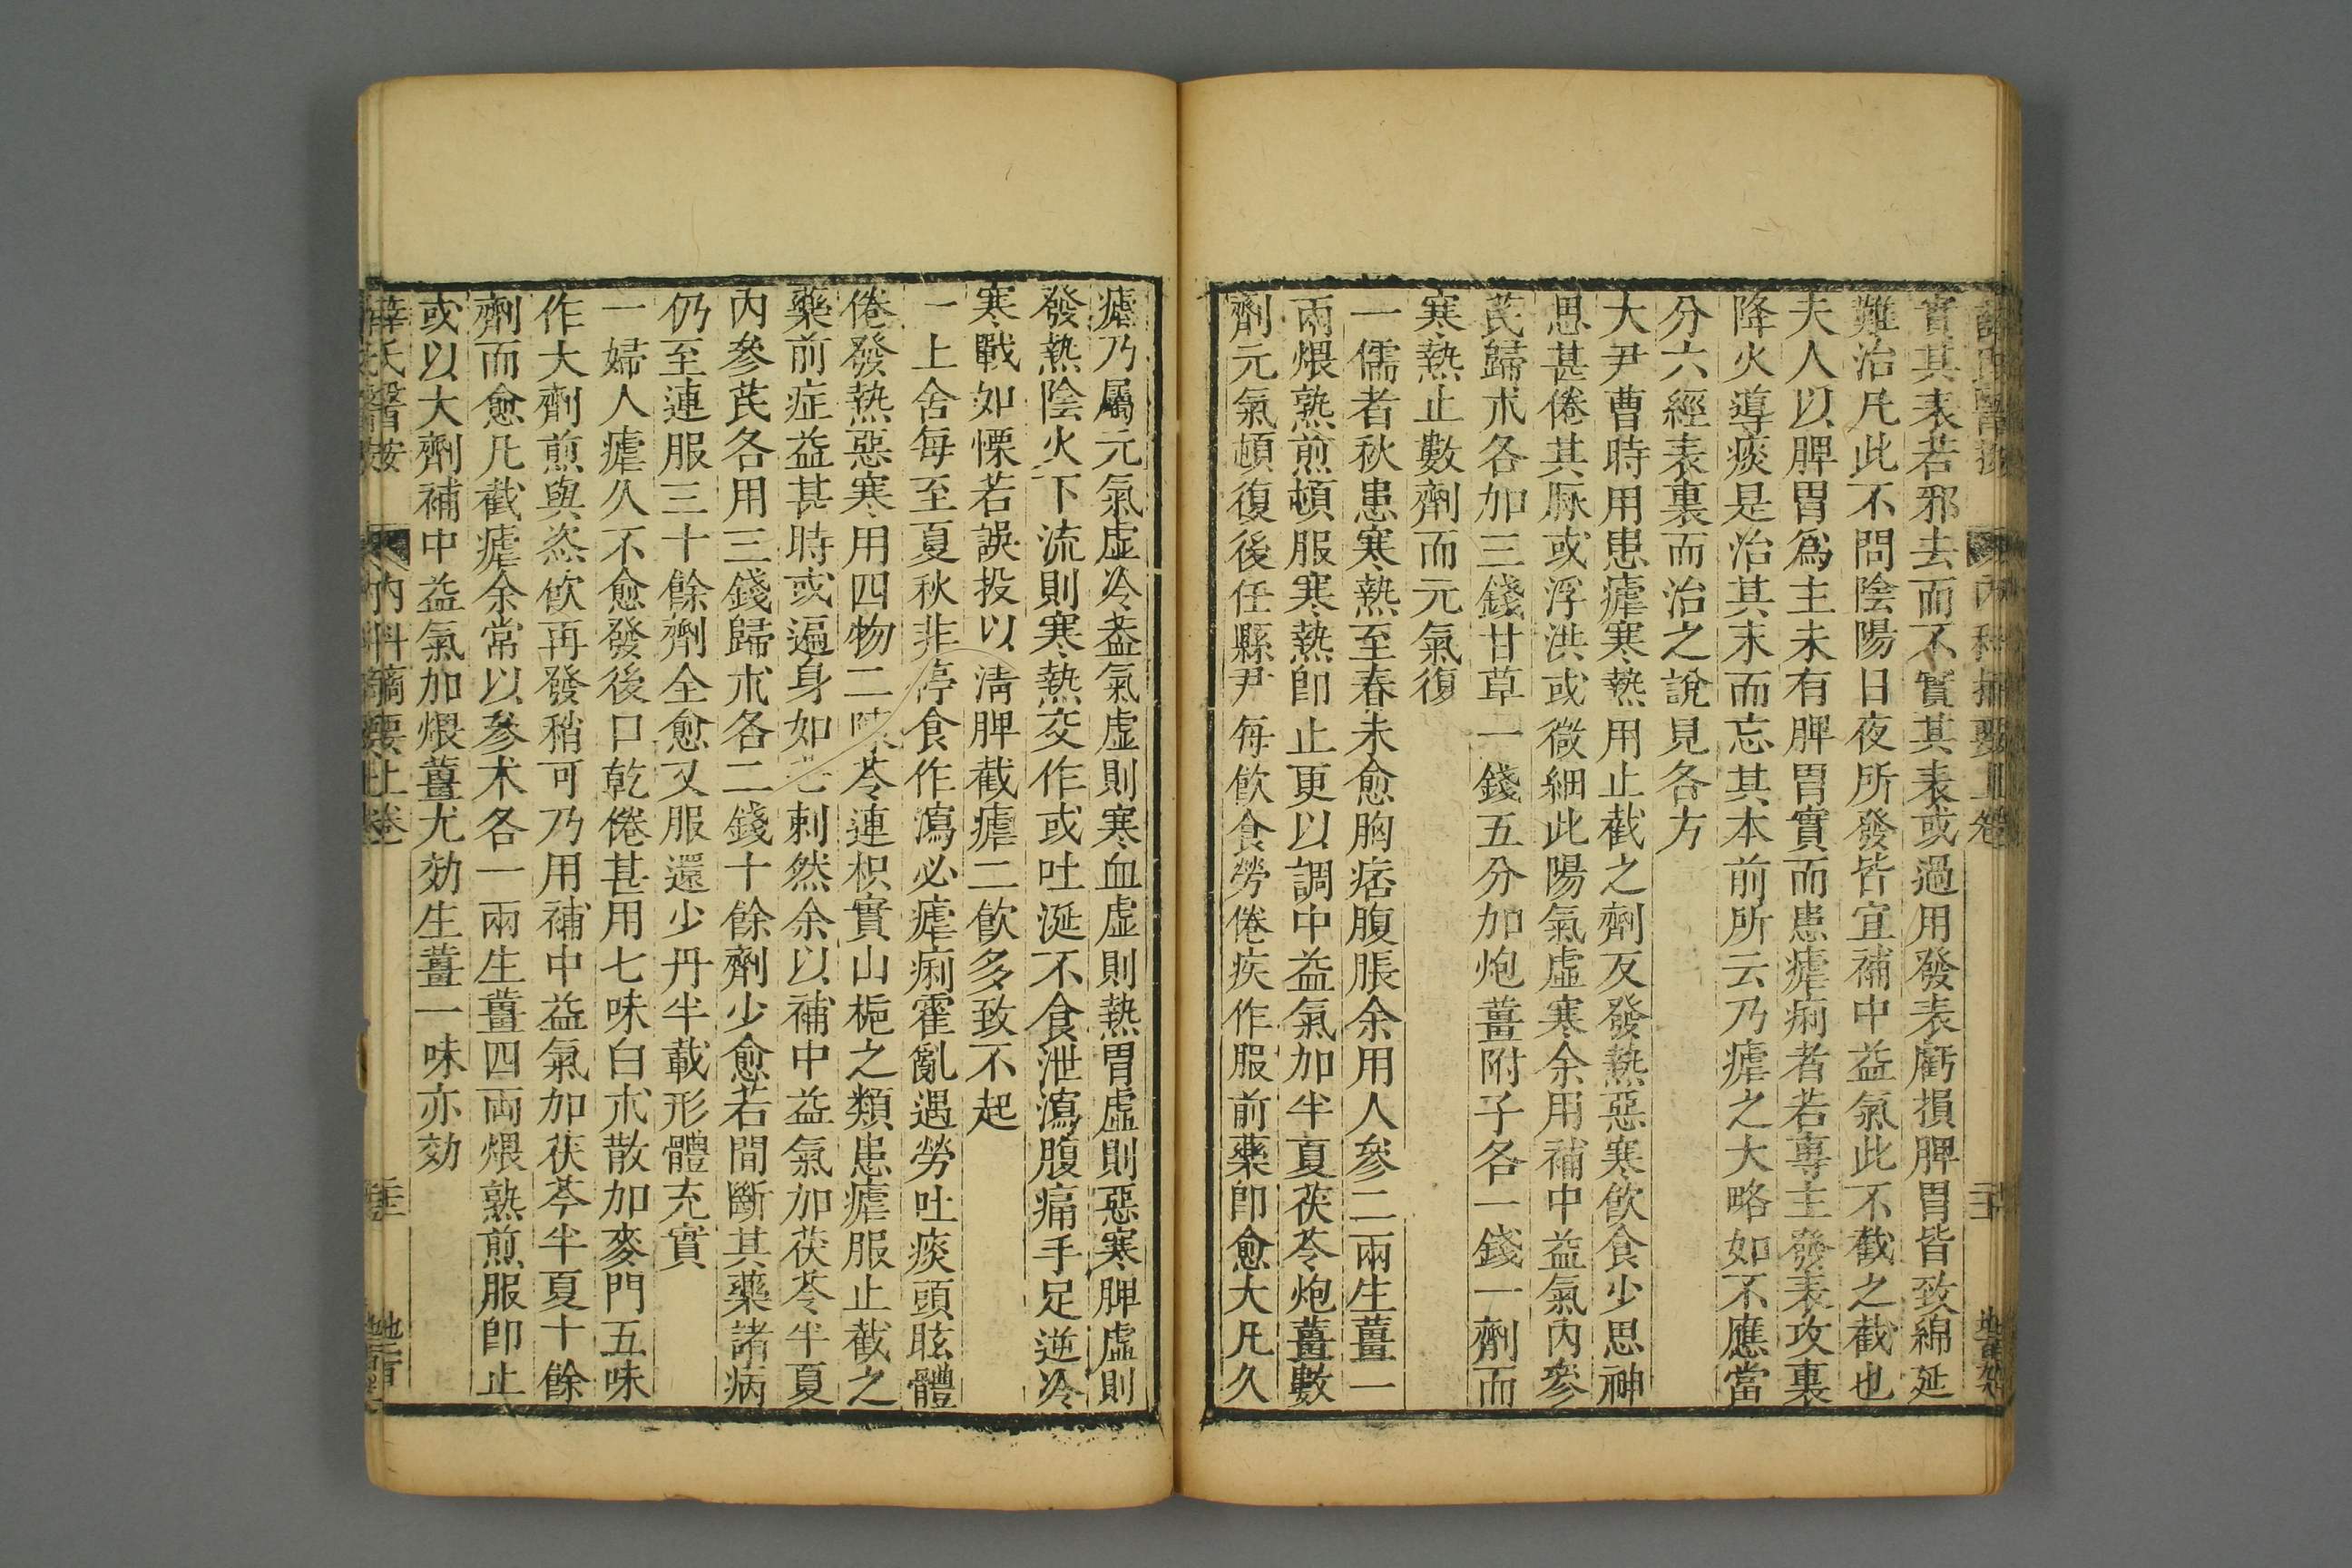 實其表若邪去而不實其表或過用發表虧損脾胃皆致綿延
難治凡此不問陰陽日夜所發皆宜補中益氣此不截之截也
夫人以脾胃爲主未有脾胃實而患瘧痢者若專主發表攻裏
降火導痰是治其末而忘其本前所云乃瘧之大略如不應當
分六經表裏而治之說見各方
大尹曹時用患瘧寒熱用止截之劑反發熱惡寒飲食少思神
思甚倦其脉或浮洪或微細此陽氣虛寒余用補中益氣內參
芪歸朮各加三錢甘草一錢五分加炮薑附子各一錢一劑而
寒熱止數劑而元氣復
一儒者秋患寒熱至春未愈胸痞腹脹余用人參二兩生薑一
兩煨熟煎頓服寒熱卽止更以調中益氣加半夏茯苓炮薑數
劑元氣頓復後任縣尹每飲食勞倦疾作服前藥卽愈大凡久
瘧乃屬元氣虛冷盖氣虛則寒血虛則熱胃虛則惡寒脾虛則
發熱陰火下流則寒熱交作或吐涎不食泄瀉腹痛手足逆冷
寒戰如慄若誤投以清脾截瘧二飲多致不起
一上舍每至夏秋非停食作瀉必瘧痢霍亂遇勞吐痰頭眩體
倦發熱惡寒用四物二陳苓連枳實山梔之類患瘧服止截之
藥前症益甚時或遍身如芒刺然余以補中益氣加茯苓半夏
內參芪各用三錢歸朮各二錢十餘劑少愈若間斷其藥諸病
仍至連服三十餘劑全愈又服還少丹半載形體充實
一婦人瘧久不愈發後口乾倦甚用七味白朮散加麥門五味
作大劑煎與恣飲再發稍可乃用補中益氣加茯苓半夏十餘
劑而愈凡截瘧余常以參术各一兩生薑四兩煨熟煎服卽止
或以大劑補中益氣加煨薑尤効生薑一味亦効
薛氏醫按 內科摘要上卷